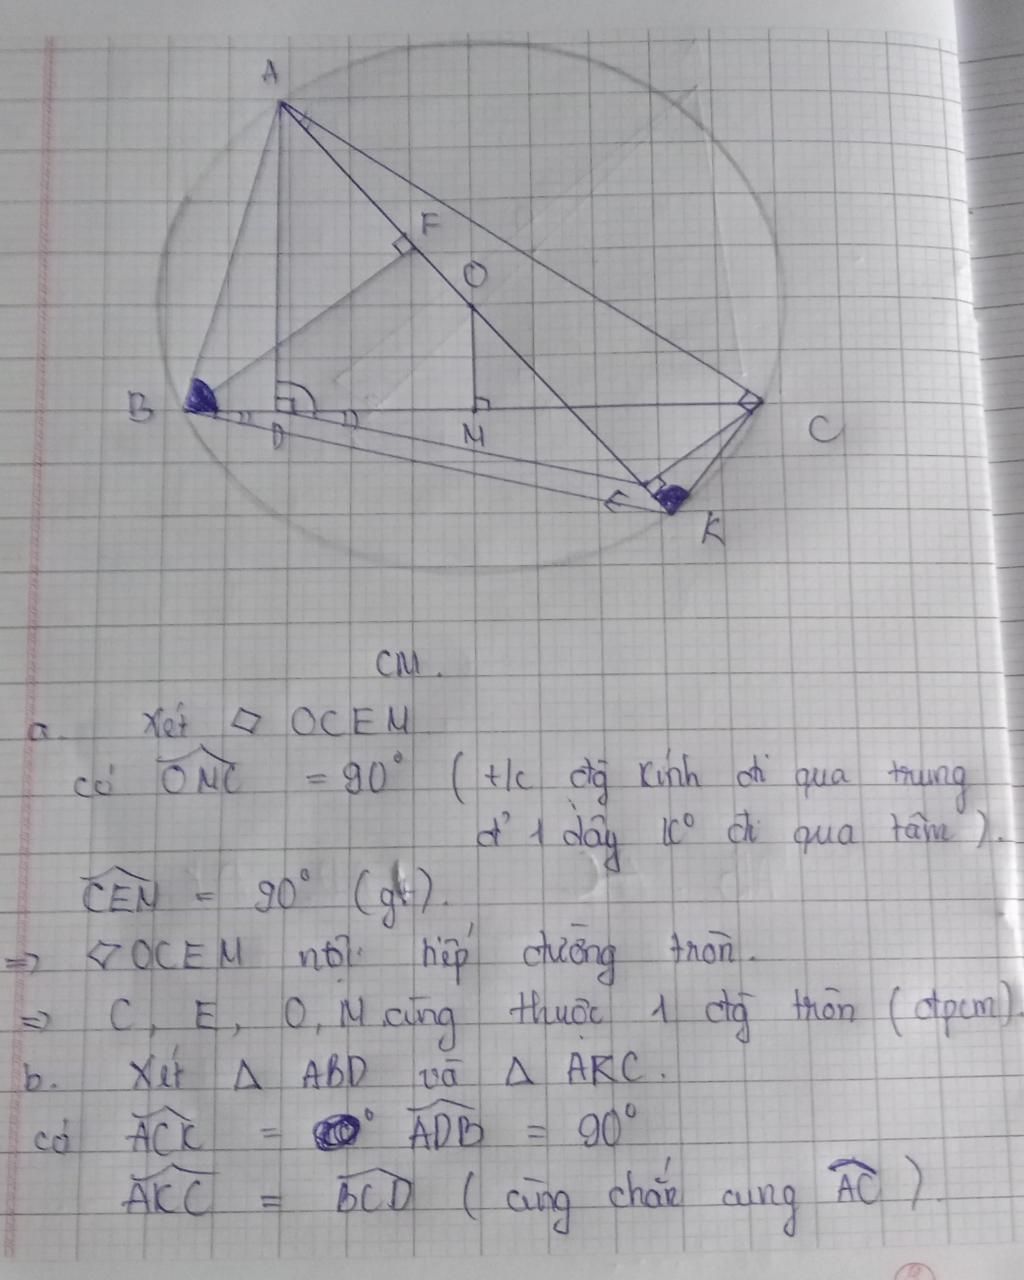 A
F
O
B
D
M
C
K
CM.
a. Xét ▱ OCEM
có OMC = 90° ( t/c đg kính đi qua trung
đ' 1 dây k° đi qua tâm ).
CEM = 90° (gt).
⇒ ▱ OCEM nội tiếp đường tròn.
⇒ C, E, O, M cùng thuộc 1 đg tròn (đpcm).
b. Xét Δ ABD và Δ AKC.
có ACK = ADB = 90°
AKC = BCD ( cùng chắn cung AC ).